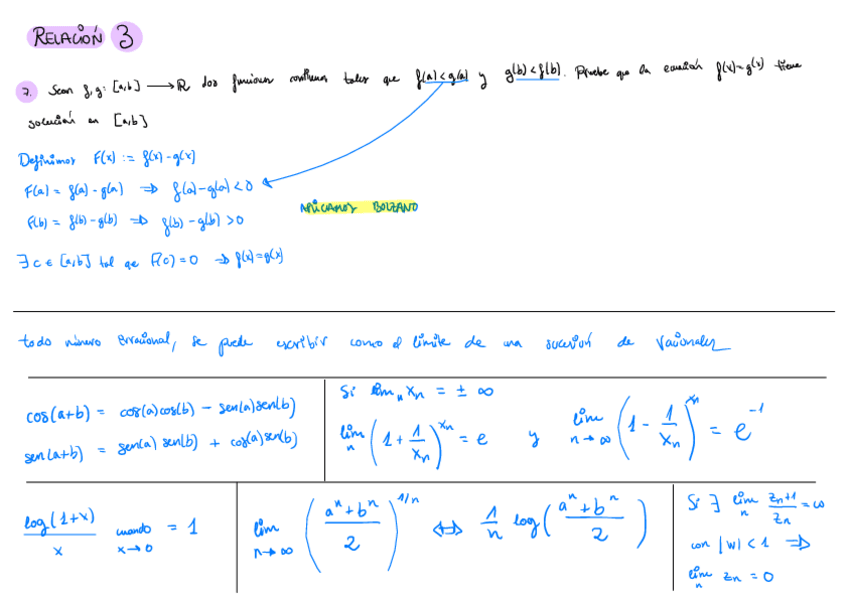 RELACIÓN 3
7. Sean f,g: [a,b] ⟶ R dos funciones continuas tales que f(a) < g(a) y g(b) < f(b). Pruebe que la ecuación f(x)=g(x) tiene
solución en [a,b]
Definimos F(x) := f(x) - g(x)
F(a) = f(a) - g(a) ⇒ f(a) - g(a) < 0
F(b) = f(b) - g(b) ⇒ f(b) - g(b) > 0
APLICAMOS BOLZANO
∃ c ∈ [a,b] tal que F(c) = 0 ⇒ f(x) = g(x)
todo número irracional, se puede escribir como el límite de una sucesión de racionales
cos(a+b) = cos(a)cos(b) - sen(a)sen(b)
sen(a+b) = sen(a) sen(b) + cos(a)sen(b)
Si lim_n x_n = ± ∞
lim_n (1 + 1/x_n)^{x_n} = e y lim_{n→∞} (1 - 1/x_n)^{x_n} = e^{-1}
log(1+x)/x cuando x→0 = 1
lim_{n→∞} ((a^n + b^n)/2)^{1/n} ⇔ 1/n log((a^n + b^n)/2)
Si ∃ lim_n z_{n+1}/z_n = ω
con |w| < 1 ⇒
lim_n z_n = 0